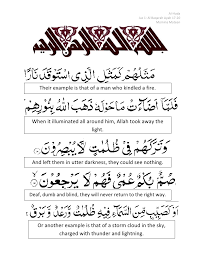 بسم الله الرحمن الرحيم
مَثَلُهُمْ كَمَثَلِ الَّذِي اسْتَوْقَدَ نَارًا
Their example is that of a man who kindled a fire.
فَلَمَّا أَضَاءَتْ مَا حَوْلَهُ ذَهَبَ اللَّهُ بِنُورِهِمْ
When it illuminated all around him, Allah took away the
light.
وَتَرَكَهُمْ فِي ظُلُمَاتٍ لَا يُبْصِرُونَ
And left them in utter darkness, they could see nothing.
صُمٌّ بُكْمٌ عُمْيٌ فَهُمْ لَا يَرْجِعُونَ
Deaf, dumb and blind, they will never return to the right way.
أَوْ كَصَيِّبٍ مِنَ السَّمَاءِ فِيهِ ظُلُمَاتٌ وَرَعْدٌ وَبَرْقٌ
Or another example is that of a storm cloud in the sky,
charged with thunder and lightning.